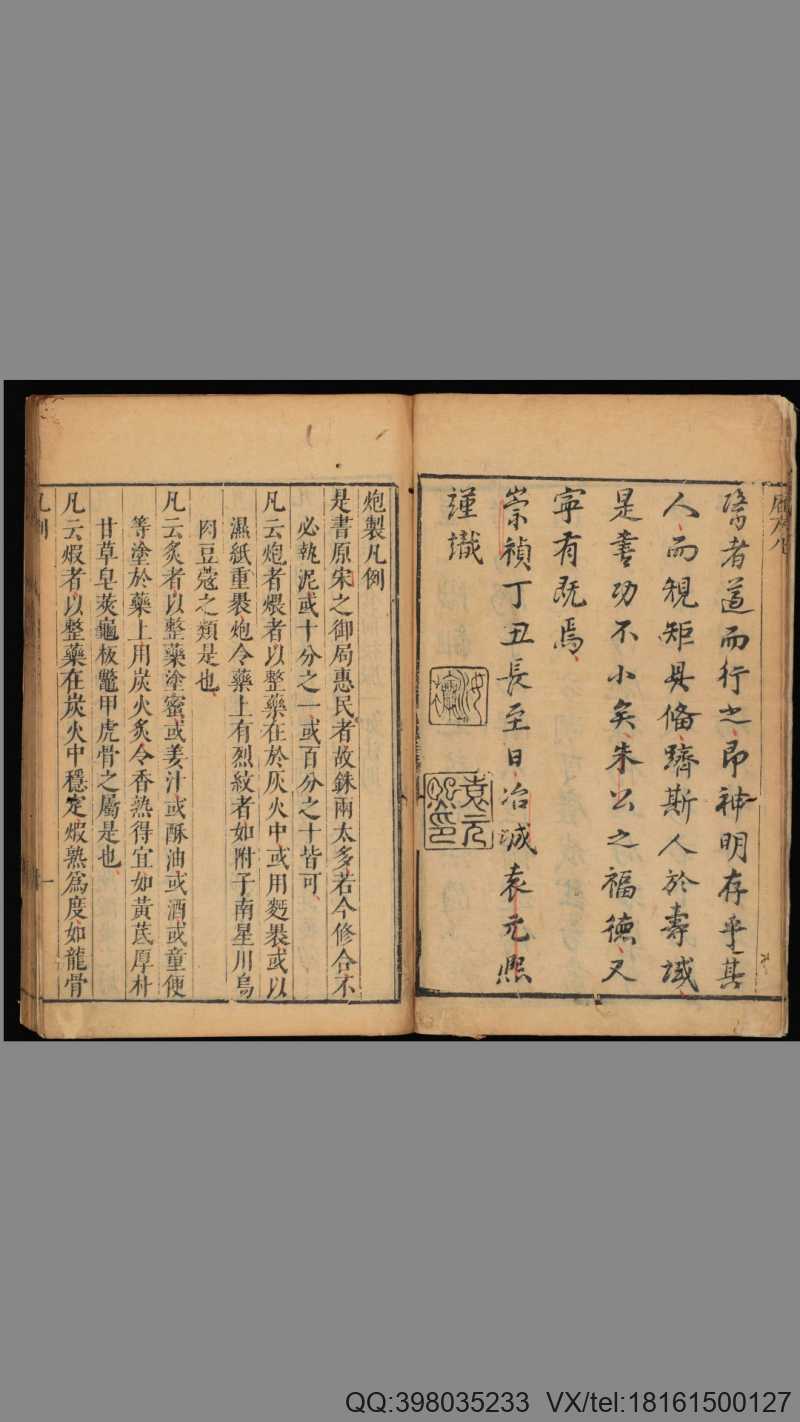 醫者道而行之即神明存乎其
人而規矩具俻躋斯人於壽域
是書功不小矣朱公之福德又
寜有既焉
崇禎丁丑長至日冶城袁元熈
謹識
袁元熈印
炮製凡例
是書原宋之御局惠民者故銖兩太多若今修合不
必執泥或十分之一或百分之十皆可
凡云炮者煨者以整藥在於灰火中或用麪褁或以
濕紙重褁炮令藥上有烈紋者如附子南星川烏
肉豆蔻之類是也
凡云炙者以整藥塗蜜或姜汁或酥油或酒或童便
等塗於藥上用炭火炙令香熱得宜如黃芪厚朴
甘草皂莢龜板鼈甲虎骨之屬是也
凡云煆者以整藥在炭火中穩定煆熟爲度如龍骨
凡例
一
QQ:398035233 VX/tel:18161500127